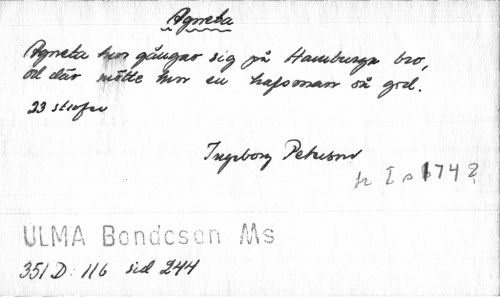 Agneta
Agneta hon gångar sig på Hamburga bro,
och där mötte hon en hafsman så god.
23 strofer
Ingeborg Peterson
fr I s 174
ULMA Bondeson Ms
351 D: 116 sid 244